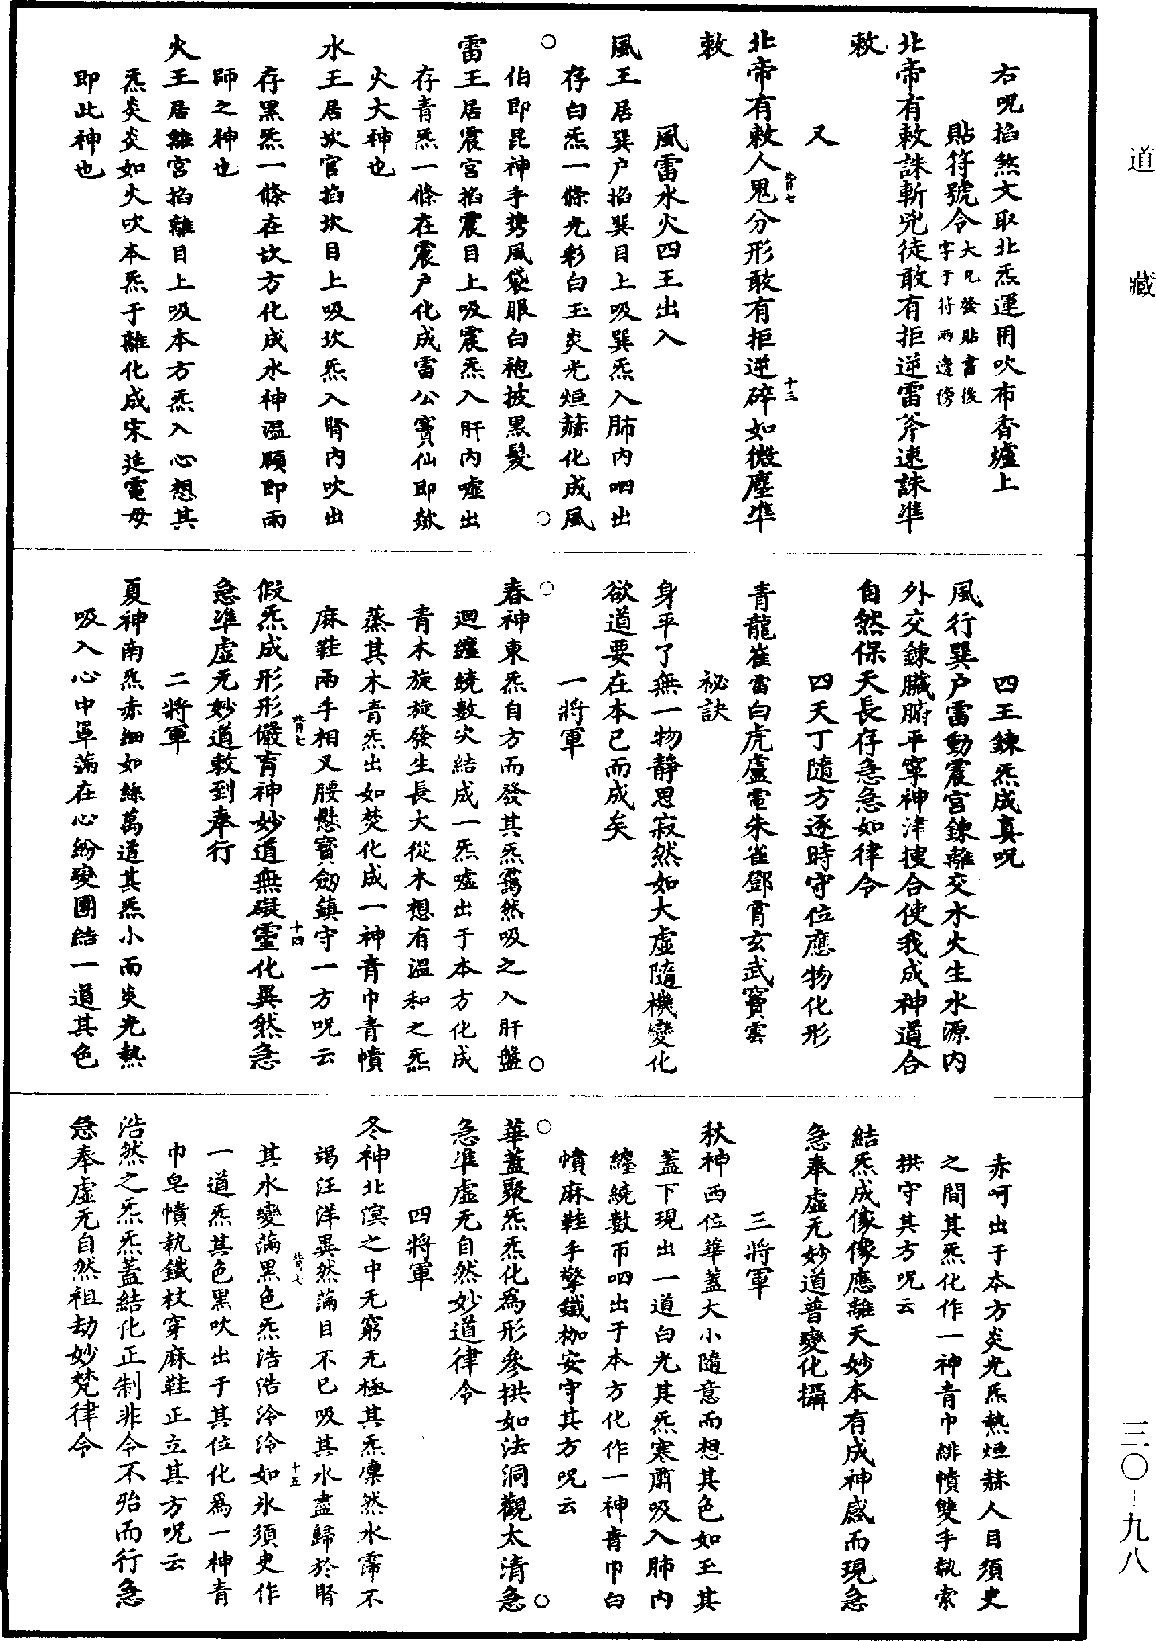 道藏
右呪掐煞文取北炁運用吹布香爐上
貼符號令大凡發貼書後字于符兩邊傍
北帝有敕誅斬兇徒敢有拒逆雷斧速誅準
敕
又
北帝有敕人鬼分形敢有拒逆碎如微塵準
敕
風雷水火四王出入
風王居巽户掐巽目上吸巽炁入肺內呬出
存白炁一條光彩白玉炎光烜赫化成風
伯即昆神手携風袋服白袍披黑髮
雷王居震宮掐震目上吸震炁入肝內噓出
存青炁一條在震户化成雷公賓仙即歘
火大神也
水王居坎官掐坎目上吸坎炁入腎內吹出
存黑炁一條在坎方化成水神溫願即雨
師之神也
火王居離宮掐離目上吸本方炁入心想其
炁炎炎如火吹本炁于離化成宋迬電母
即此神也
四王鍊炁成真呪
風行巽户雷動震宮鍊離交水火生水源內
外交鍊臟腑平寧神津搜合使我成神道合
自然保天長存急急如律令
四天丁隨方逐時守位應物化形
青龍崔雷白虎盧電朱雀鄧霄玄武竇雲
祕訣
身平了無一物靜思寂然如大虛隨機變化
欲道要在本已而成矣
一將軍
春神東炁自方而發其炁靄然吸之入肝盤
迴纏繞數次結成一炁噓出于本方化成
青木旋旋發生長大從木想有溫和之炁
蒸其木青炁出如焚化成一神青巾青幘
麻鞋兩手相叉腰懸寶劔鎮守一方呪云
假炁成形形儼育神妙道無礙靈化異然急
急準虛无妙道敕到奉行
二將軍
夏神南炁赤細如絲萬道其炁小而炎光熱
吸入心中單滿在心紛變團結一道其色
赤呵出于本方炎光炁熱烜赫人目須史
之間其炁化作一神青巾緋幘雙手執索
拱守其方呪云
結炁成像像應離天妙本有成神感而現急
急奉虛无妙道普變化攝
三將軍
秋神西位華蓋大小隨意而想其色如玉其
蓋下現出一道白光其炁寒肅吸入肺內
纏繞數帀呬出于本方化作一神青巾白
幘麻鞋手擎鐵枷安守其方呪云
華蓋聚炁炁化為形參拱如法洞觀太清急
急準虛无自然妙道律令
四將軍
冬神北溟之中无窮无極其炁凜然水霈不
竭汪洋異然滿目不已吸其水盡歸於腎
其水變滿黑色炁浩浩泠泠如氷須史作
一道炁其色黑吹出于其位化為一神青
巾皂幘執鐵杖穿麻鞋正立其方呪云
浩然之炁炁蓋結化正制非令不殆而行急
急奉虛无自然祖劫妙梵律令
三〇-九八